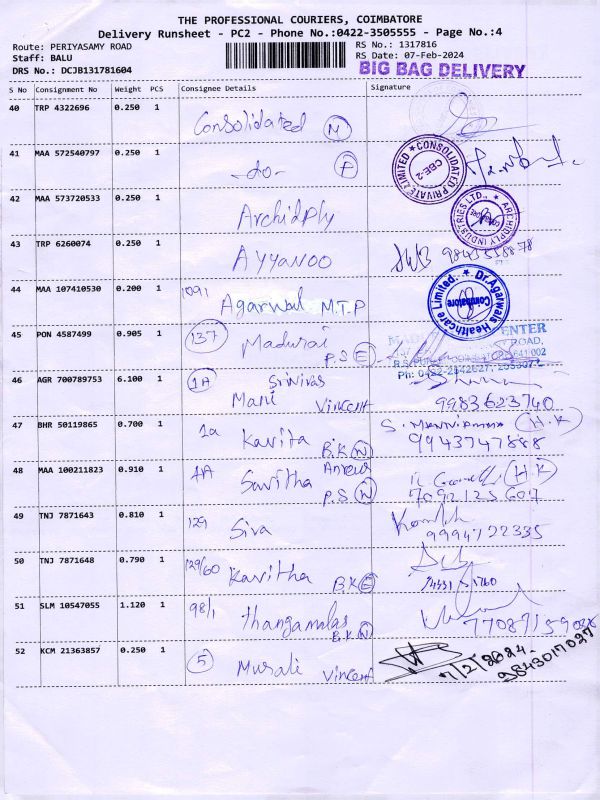 THE PROFESSIONAL COURIERS, COIMBATORE
Delivery Runsheet - PC2 - Phone No.:0422-3505555 - Page No.:4
Route: PERIYASAMY ROAD
RS No.: 1317816
Staff: BALU
RS Date: 07-Feb-2024
DRS No.: DCJB131781604
BIG BAG DELIVERY
S No Consignment No Weight PCS Consignee Details Signature
40 TRP 4322696 0.250 1 Consolidated (N)
41 MAA 572540797 0.250 1 -do- (F)
CONSOLIDATED PRIVATE LIMITED CBE-2
42 MAA 573720533 0.250 1 Archidply
ARCHIDPLY INDUSTRIES LTD.,
43 TRP 6260074 0.250 1 AYYANOO
44 MAA 107410530 0.200 1 1091 Agarwal M.T.P
Dr.Agarwals Healthcare Limited. Coimbatore
45 PON 4587499 0.905 1 (137) Madurai P.S (E)
46 AGR 700789753 6.100 1 (1A) Srinivas Mani Vincent 9983623740
47 BHR 50119865 0.700 1 1a Kavita B.K (N) (H.K) 9943747888
48 MAA 100211823 0.910 1 4A Savitha P.S (N) (H.K)
49 TNJ 7871643 0.810 1 129 Siva 9994722335
50 TNJ 7871648 0.790 1 129/60 Kavitha B.K (E)
51 SLM 10547055 1.120 1 98/1 Thangamalas B.K (N)
52 KCM 21363857 0.250 1 (5) Murali Vincent 7/2/2024 9843017027